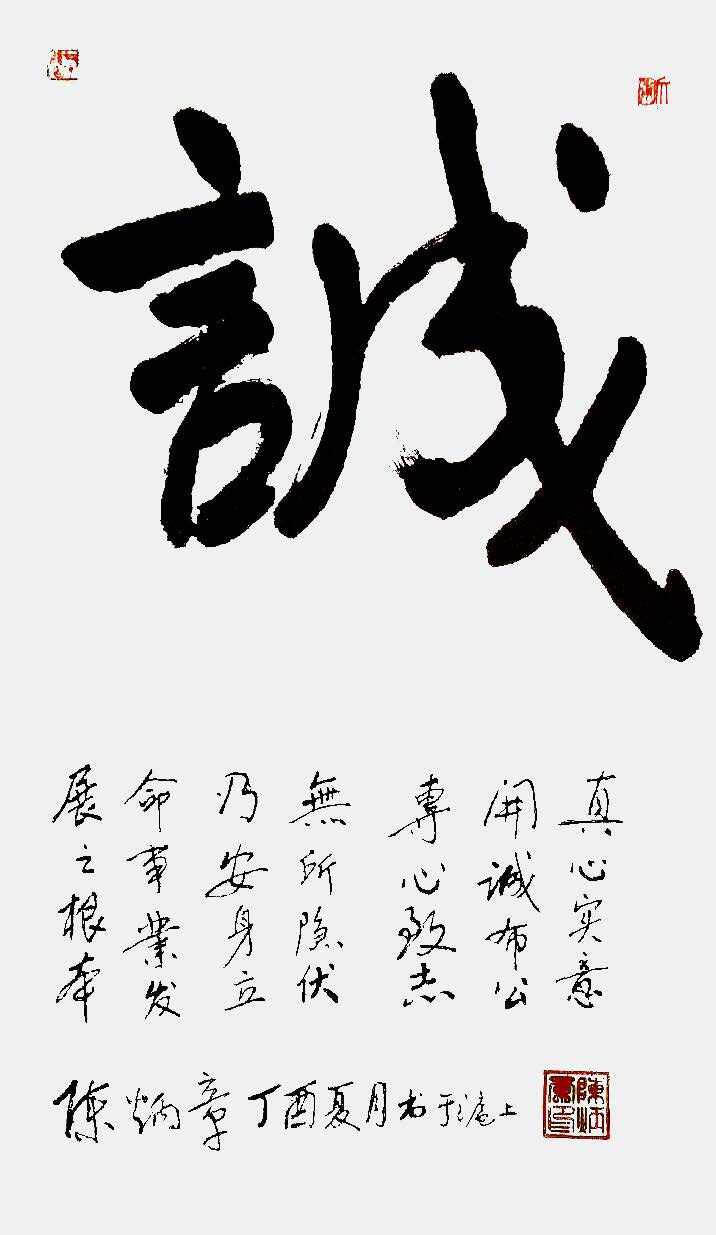 誠
真心实意
開誠布公
專心致志
無所隐伏
乃安身立
命事業发
展之根本
陳炳章丁酉夏月书于滬上
陳炳章印